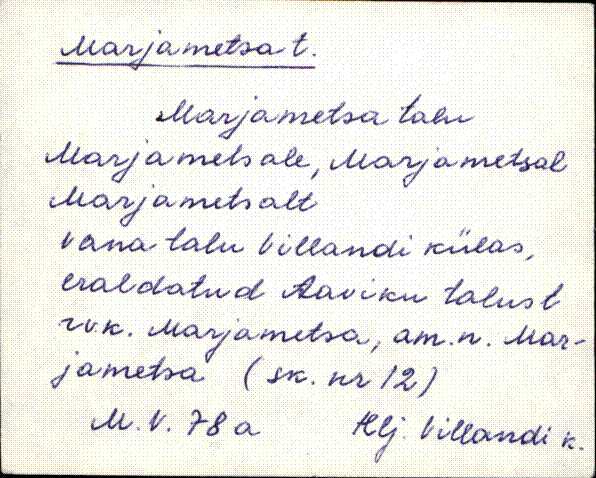 Marjametsa t.
Marjametsa talu
Marjametsale, Marjametsal
Marjametsalt
Vana talu Villandi külas,
eraldatud Aaviku talust
rvk. Marjametsa, am.n. Mar-
jametsa (sk. nr 12)
M.V. 78 a Hlj. Villandi k.